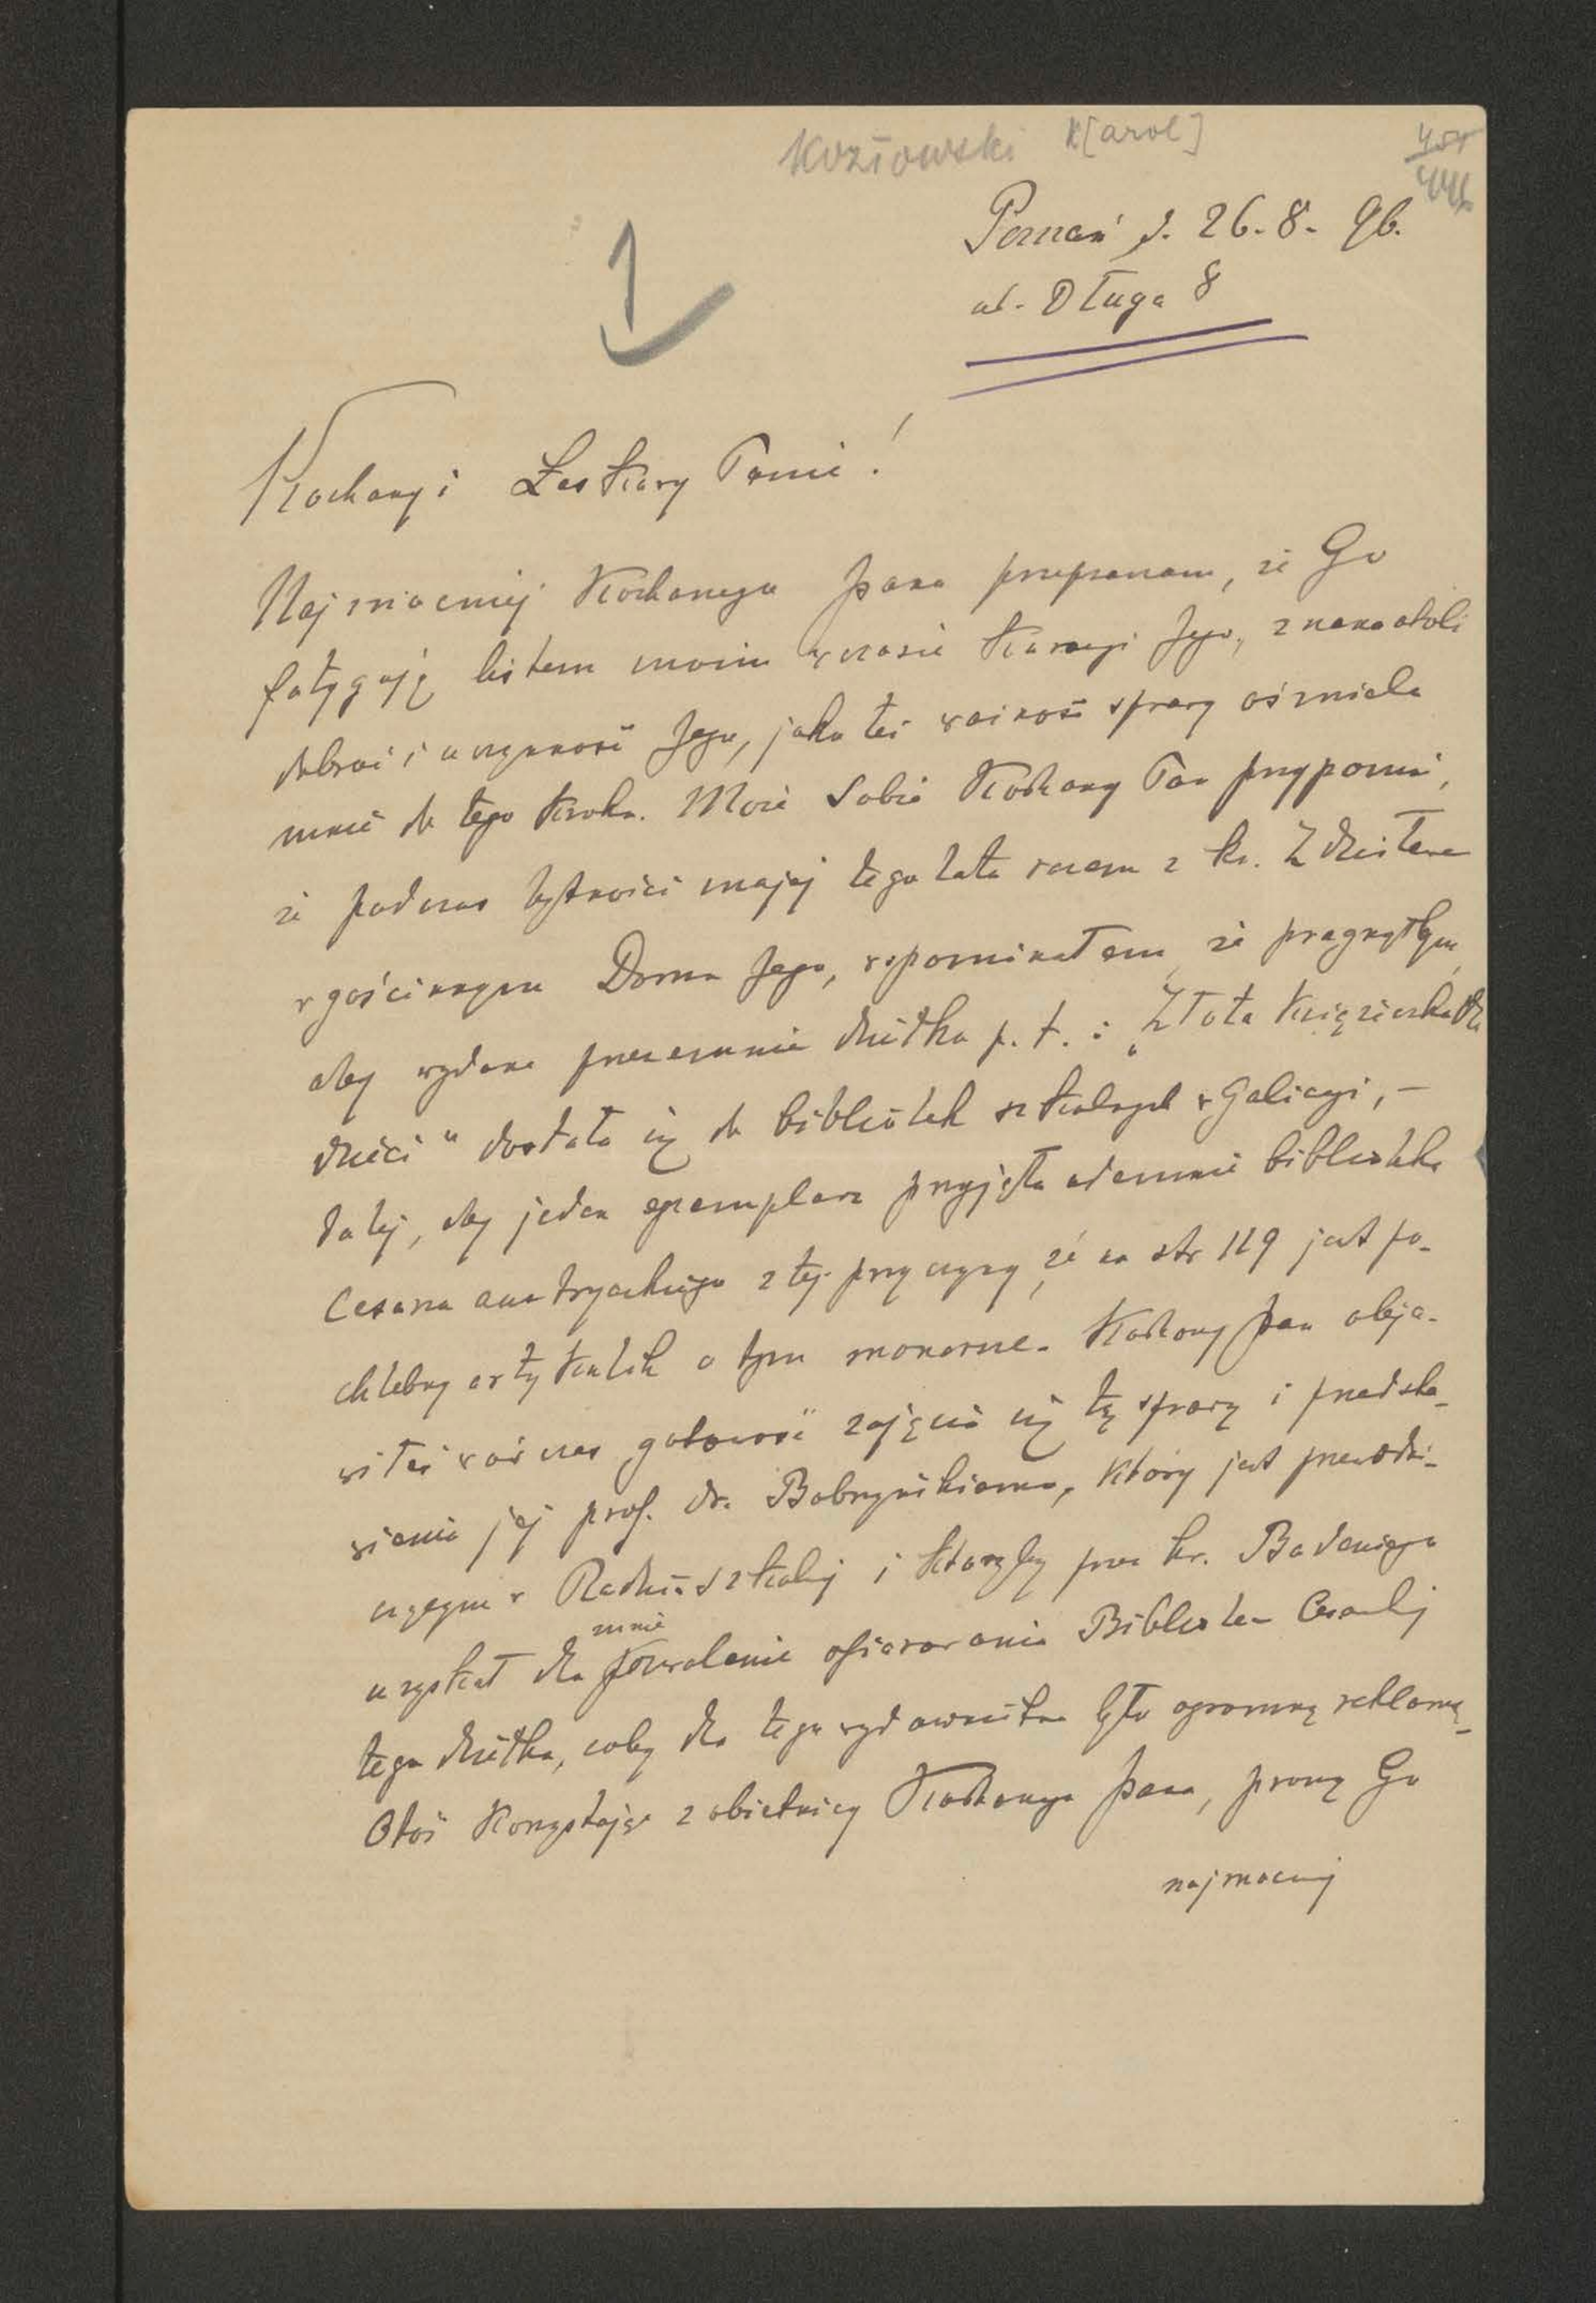 Kozłowski K[arol]
Poznań d. 26.-8.- 96.
ul. Długa 8
1
Kochany i Łaskawy Panie!
Najmocniej Kochanego Pana przepraszam, że Go
fatyguję listem moim w czasie kuracyi Jego, znana atoli
dobroć i uczynność Jego, jako też ważność sprawy ośmiela
mnie do tego kroku. Może Sobie Kochany Pan przypomni,
że podczas bytności mojej tego lata razem z ks.
w gościnnym Domu Jego, wspominałem, że pragnąłbym,
aby wydane przezemnie dziełko p. t.: „Złota książeczka dla
dzieci" dostała się do bibliotek szkolnych w Galicyi, –
dalej, aby jeden egzemplarz przyjęła odemnie biblioteka
Cesarza austryackiego z tej przyczyny, że na str 119 jest po-
chlebny artykulik o tym monarsze. Kochany Pan obja-
wiłeś wówczas gotowość zajęcia się tą sprawą i przedsta-
wienia jej prof. dr. Bobrzyńskiemu, który jest przewodni-
czącym w Radzie szkolnej i któryby przez hr. Badeniego
uzyskał dla mnie pozwolenie ofiarowania Bibliotece Cesarskiej
tego dziełka, coby dla tego wydawnictwa było ogromną reklamą.
Otóż korzystając z obietnicy Kochanego Pana, proszę Go
najmocniej